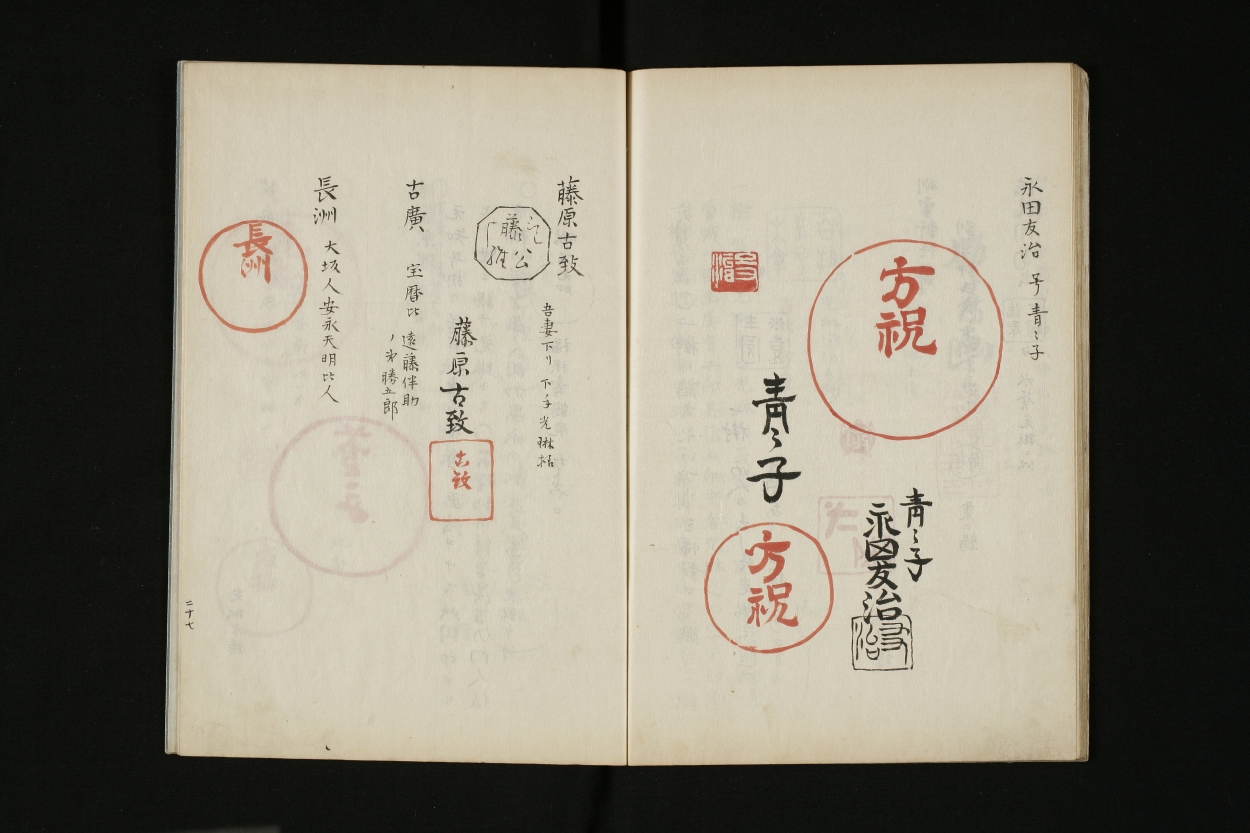 永田友治 号青〻子
方祝
青〻子
永田友治
友治
友治
青〻子
方祝
藤原古致
藤公
吾妻下リ 下手光琳格
藤原古致
古致
古廣 宝暦比 遠藤伴助
ノ弟勝五郎
長洲 大坂人安永天明比人
長洲
二十七